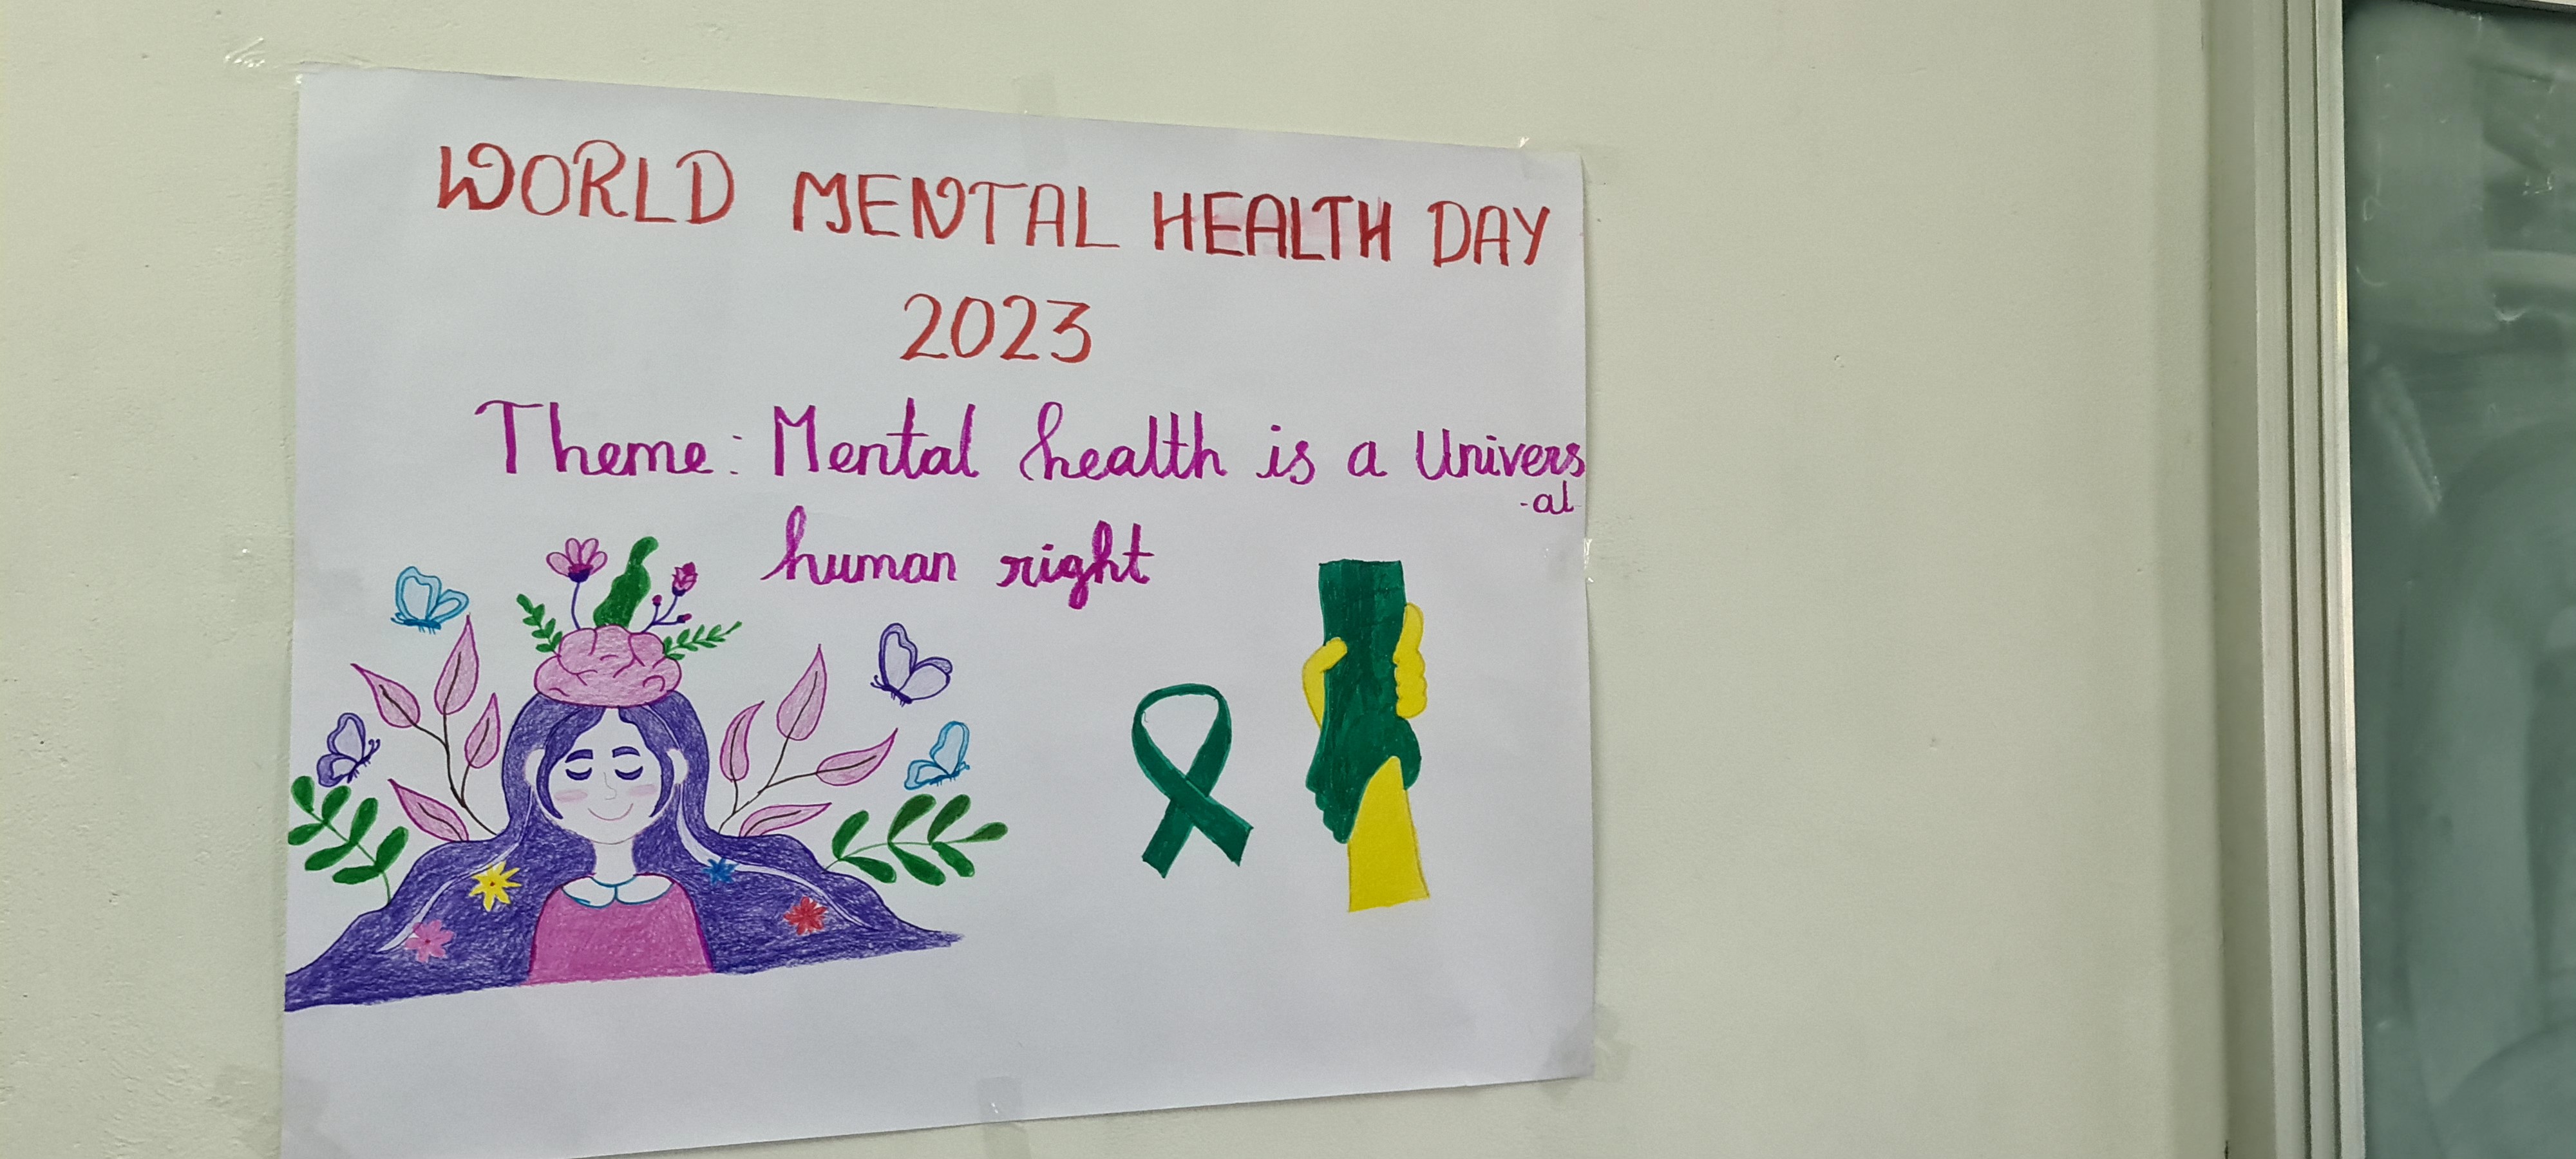 WORLD MENTAL HEALTH DAY
2023
Theme: Mental health is a Univers
-al
human right